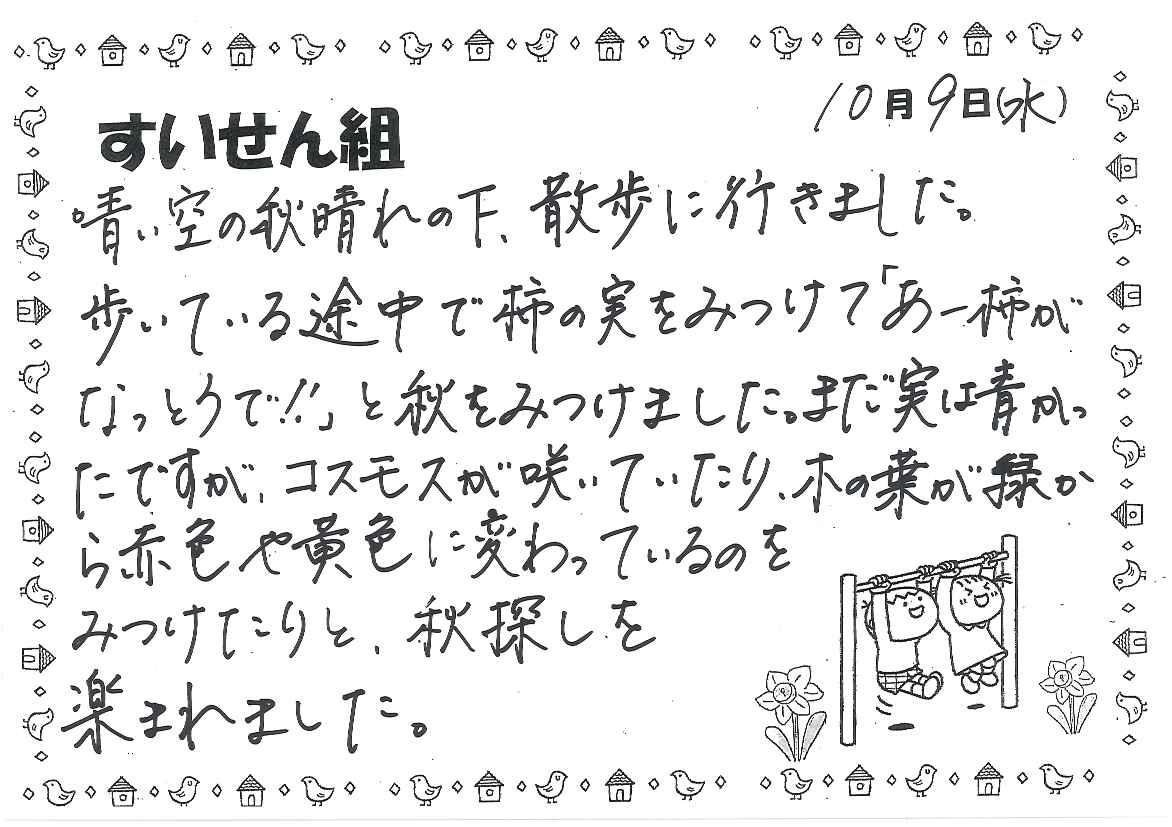 10月9日(水)
すいせん組
青い空の秋晴れの下、散歩に行きました。
歩いている途中で柿の実をみつけて「あー柿が
なっとうで!!」と秋をみつけました。まだ実は青かっ
たですが、コスモスが咲いていたり、木の葉が緑か
ら赤色や黄色に変わっているのを
みつけたりと、秋探しを
楽まれました。